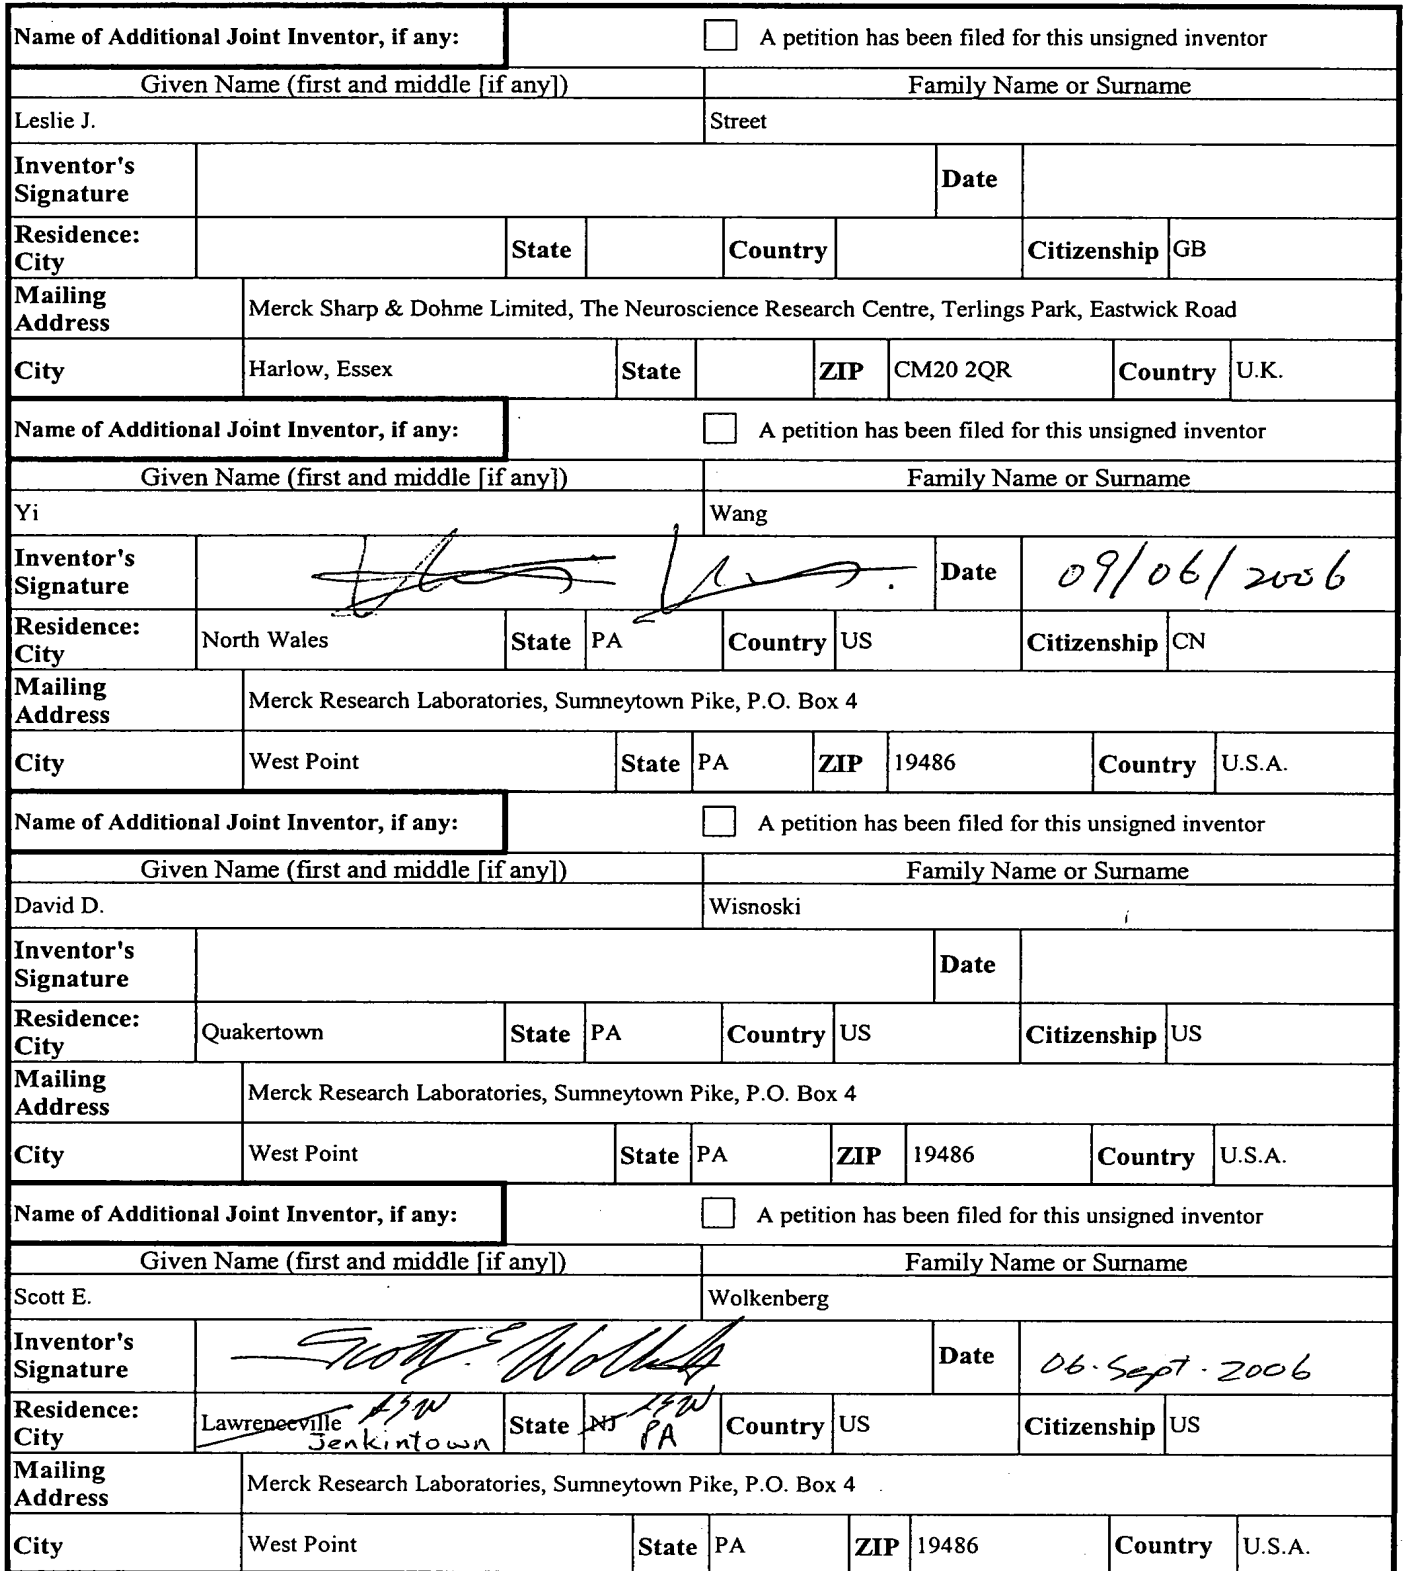 Name of Additional Joint Inventor, if any: A petition has been filed for this unsigned inventor
Given Name (first and middle [if any]) Family Name or Surname
Leslie J. Street
Inventor's Signature Date
Residence: City State Country Citizenship GB
Mailing Address Merck Sharp & Dohme Limited, The Neuroscience Research Centre, Terlings Park, Eastwick Road
City Harlow, Essex State ZIP CM20 2QR Country U.K.
Name of Additional Joint Inventor, if any: A petition has been filed for this unsigned inventor
Given Name (first and middle [if any]) Family Name or Surname
Yi Wang
Inventor's Signature Date 09/06/2006
Residence: City North Wales State PA Country US Citizenship CN
Mailing Address Merck Research Laboratories, Sumneytown Pike, P.O. Box 4
City West Point State PA ZIP 19486 Country U.S.A.
Name of Additional Joint Inventor, if any: A petition has been filed for this unsigned inventor
Given Name (first and middle [if any]) Family Name or Surname
David D. Wisnoski
Inventor's Signature Date
Residence: City Quakertown State PA Country US Citizenship US
Mailing Address Merck Research Laboratories, Sumneytown Pike, P.O. Box 4
City West Point State PA ZIP 19486 Country U.S.A.
Name of Additional Joint Inventor, if any: A petition has been filed for this unsigned inventor
Given Name (first and middle [if any]) Family Name or Surname
Scott E. Wolkenberg
Inventor's Signature Scott E Wolkenberg Date 06.Sept.2006
Residence: City Lawrenceville Jenkintown State NJ PA Country US Citizenship US
Mailing Address Merck Research Laboratories, Sumneytown Pike, P.O. Box 4
City West Point State PA ZIP 19486 Country U.S.A.